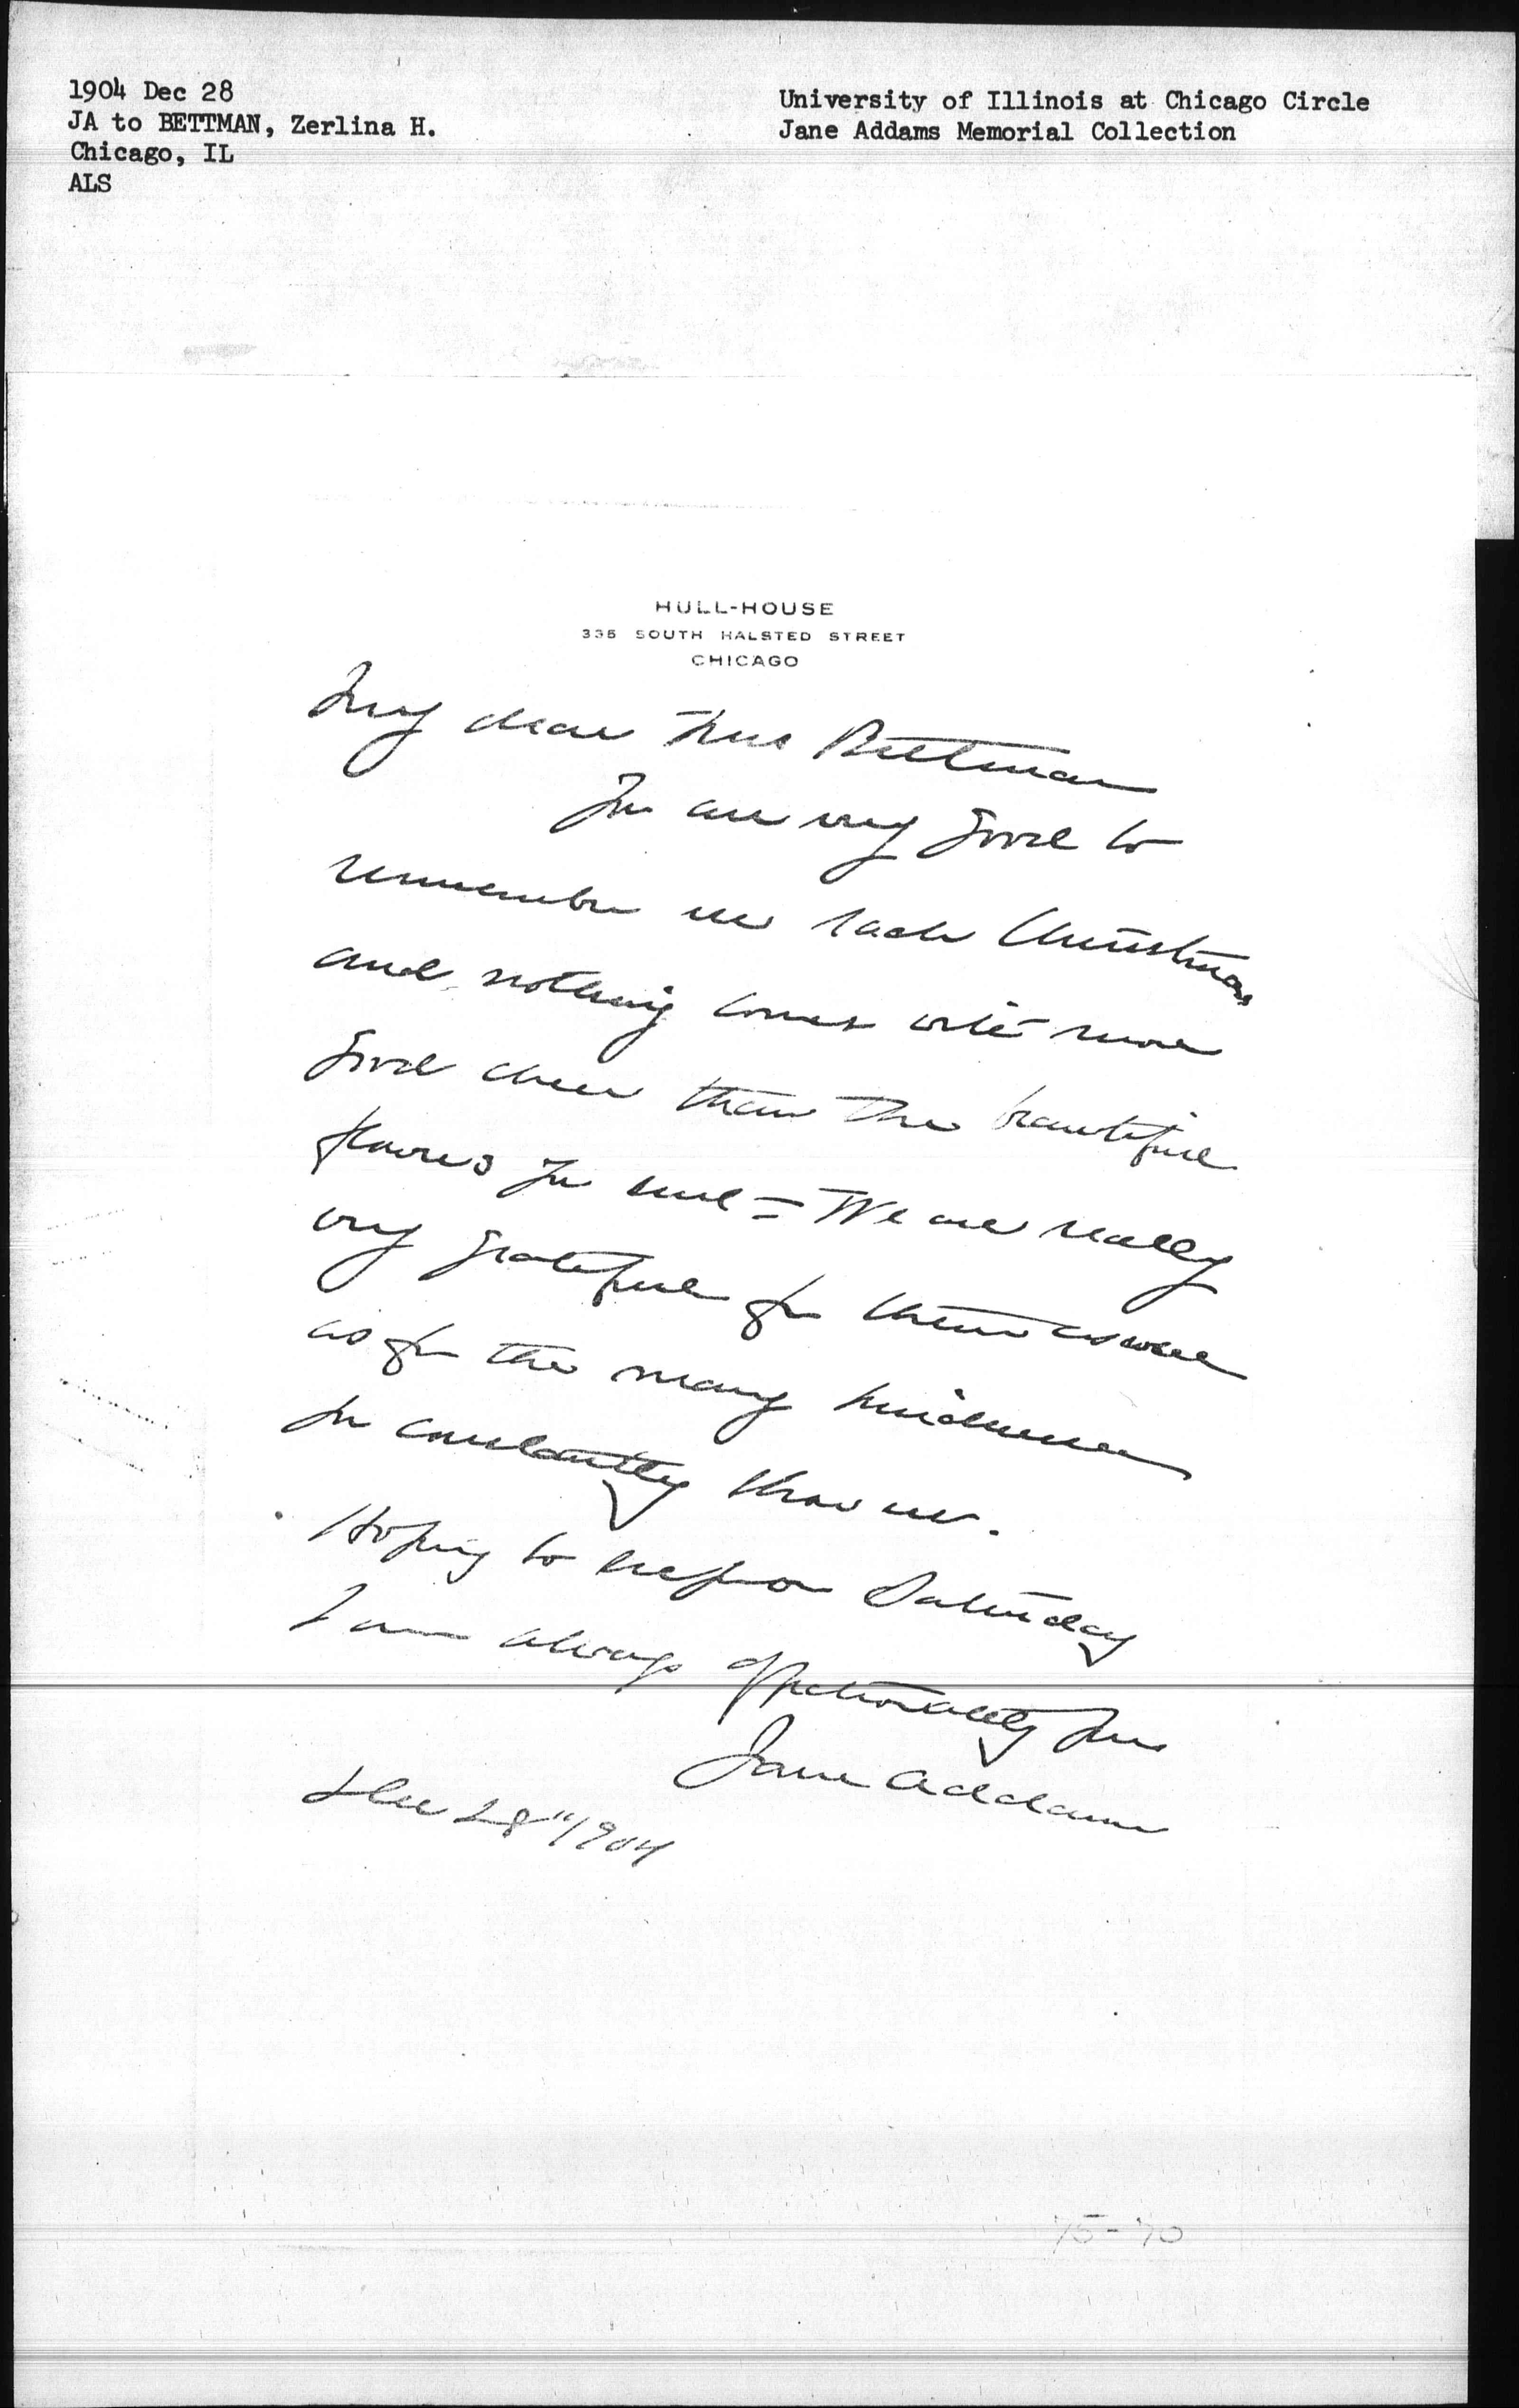 1904 Dec 28
JA to BETTMAN, Zerlina H.
Chicago, IL
ALS
University of Illinois at Chicago Circle
Jane Addams Memorial Collection
HULL-HOUSE
335 SOUTH HALSTED STREET
CHICAGO
My dear Mrs Bettman
You are very good to
remember us each Christmas
and nothing comes with more
good cheer than the beautiful
flowers you send = We are really
very grateful for them as well
as for the many kindnesses
you constantly show us.
Hoping to see you on Saturday
I am always affectionately yours
Jane Addams
Dec 28" 1904
75-70